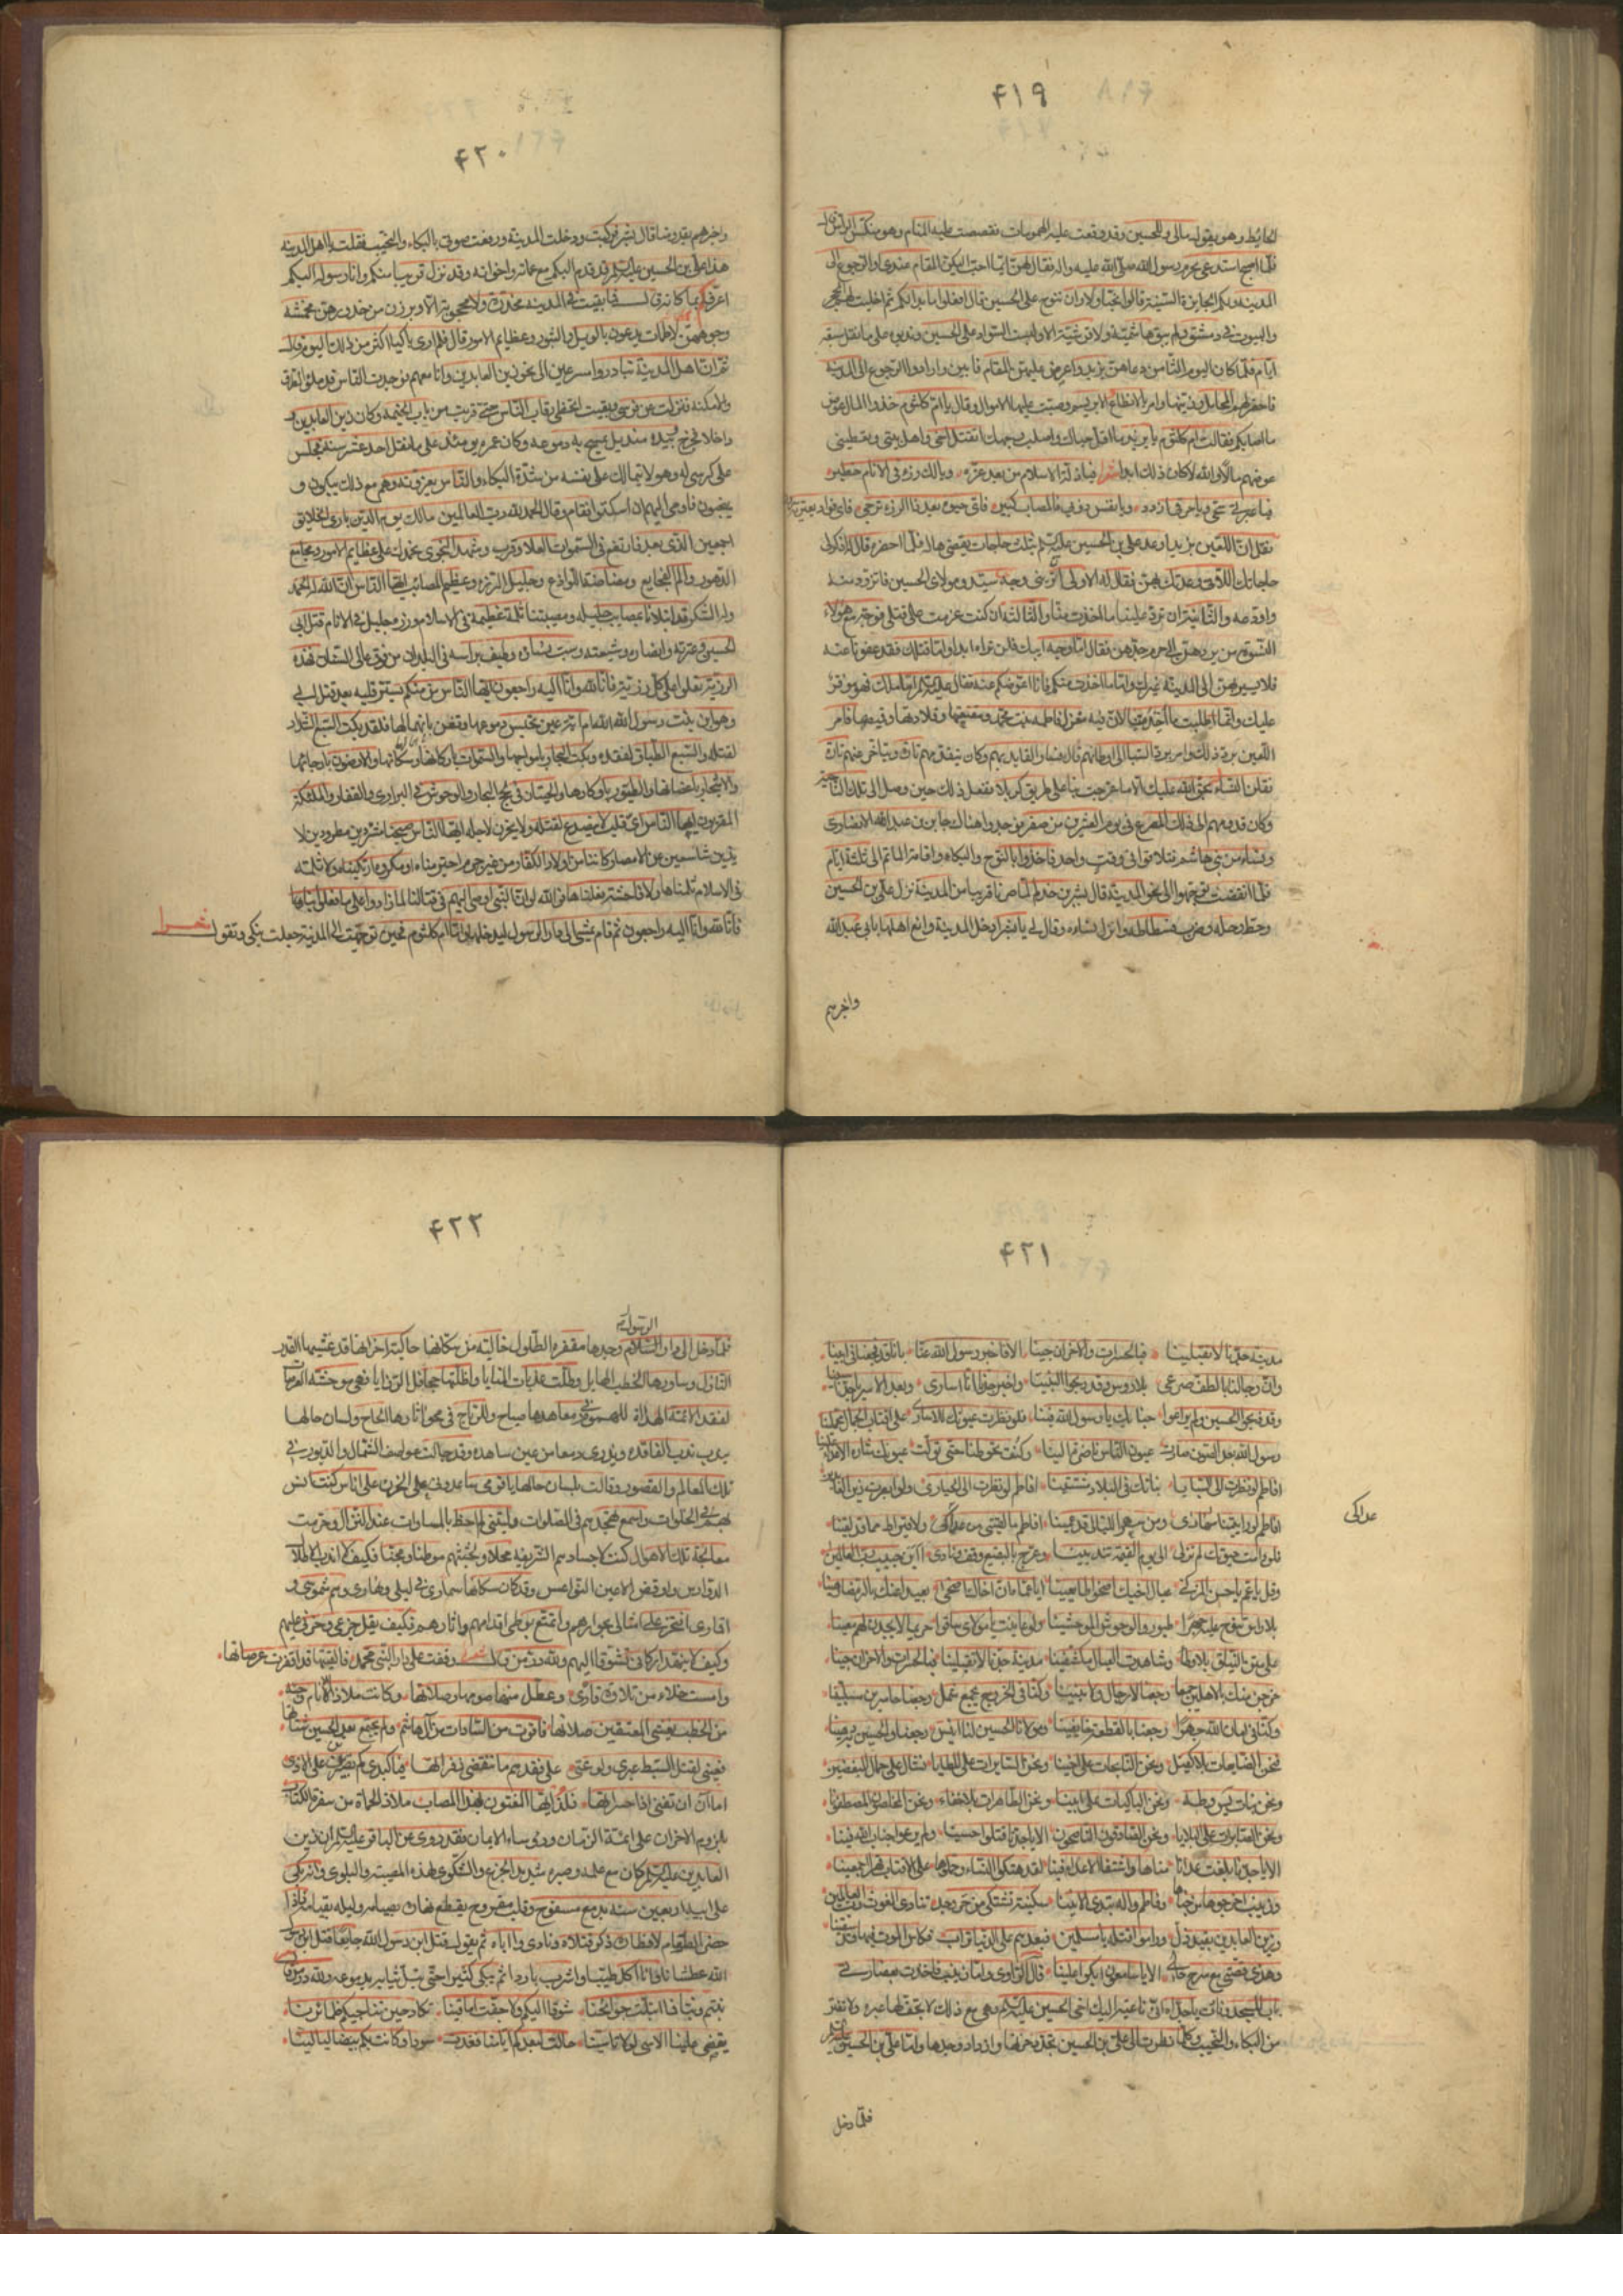 ۴۱۹
الحايط وهو يقول مالي وللحسين وقد وقعت عليه الهمومات فقصصت عليه المنام وهو منكس الراس قال
فلما اصبح استدعى بحرم رسول الله صلى الله عليه واله فقال لهن ايما احب اليكن المقام عندي او الرجوع الى
المدينة ولكم الجايزة السنية قالوا نحب اولا ان ننوح على الحسين قال افعلوا ما بدا لكم ثم اخليت لهن الحجر
والبيوت في دمشق ولم يبق هاشمية ولا قرشية الا ولبست السواد على الحسين وندبوه على ما نقل سبعة
ايام فلما كان اليوم الثامن دعاهن يزيد واعرض عليهن المقام فابين وارادوا الرجوع الى المدينة
فاحضر لهم المحامل وزينها وامر بالانطاع الابريسم وصبت عليها الاموال وقال يا ام كلثوم خذوا المال عوض
ما اصابكم فقالت ام كلثوم يا يزيد ما اقل حياك واصلب وجهك اتقتل اخي واهل بيتي وتعطيني
عوضهم مالا والله لا كان ذلك ابدا
نقل ان اللعين يزيد اوعد علي بن الحسين عليه السلام بثلث حاجات يقضيها له فلما احضره قال له اذكر لي
حاجاتك اللاتي وعدتك بهن فقال له الاولى ان تريني وجه سيدي ومولاي الحسين فاتزود منه
واودعه والثانية ان ترد علينا ما اخذت منا والثالثة ان كنت عزمت على قتلي فوجه مع هؤلاء
النسوة من يردهن الى حرم جدهن فقال اما وجه ابيك فلن تراه ابدا واما قتلك فقد عفونا عنه
فلا يسير بهن الى المدينة غيرك واما ما اخذت منكم فانا اعوضكم عنه فقال عليه السلام اما مالك فهو موفر
عليك وانما اطلب ما اخذ منا لان فيه مغزل فاطمة بنت محمد ومقنعتها وقلادتها وقميصها فامر
اللعين برد ذلك وامر برد السبايا الى اوطانهم
فقلن النساء بحق الله عليك الا ما عرجت بنا على طريق كربلا ففعل ذلك حين وصل الى تلك الناحية
وكان قدومهم الى ذلك المصرع في يوم العشرين من صفر فوجدوا هناك جابر بن عبد الله الانصاري
ونساء من بني هاشم فتلاقوا في وقت واحد فاخذوا بالنوح والبكاء واقامة الماتم الى ثلثة ايام
فلما انقضت توجهوا الى نحو المدينة قال بشير بن حذلم لما صرنا قريبا من المدينة نزل علي بن الحسين
وحط رحله وضرب فسطاطه وانزل نساءه وقال لي يا بشير ادخل المدينة وانع اهلها بابي عبد الله
واخبرهم
۴۲۰
واخبرهم بقدومنا قال بشير فركبت ودخلت المدينة ورفعت صوتي بالبكاء والنحيب فقلت يا اهل المدينة
هذا علي بن الحسين عليه السلام قد قدم اليكم مع عماته واخواته وقد نزل قريبا منكم وانا رسوله اليكم
اعرفكم مكانه قال فما بقيت في المدينة مخدرة ولا محجوبة الا وبرزن من خدورهن مخمشة
وجوههن لاطمات يدعون بالويل والثبور وعظايم الامور قال فلم ار باكيا اكثر من ذلك اليوم قال
ثم ان اهل المدينة تبادروا مسرعين الى نحو زين العابدين وانا معهم فوجدت الناس قد ملؤا الطرق
والامكنة فنزلت عن فرسي وبقيت اتخطى رقاب الناس حتى قربت من باب الخيمة وكان زين العابدين
داخلا فخرج وبيده منديل يمسح به دموعه وكان عمره يومئذ على ما نقل احد عشر سنة فجلس
على كرسي له وهو لا يتمالك على نفسه من شدة البكاء والناس يعزونه وهم مع ذلك يبكون و
ينحبون فاومى اليهم ان اسكتوا فقام وقال الحمد لله رب العالمين مالك يوم الدين بارئ الخلايق
اجمعين الذي بعد فارتفع في السموات العلا وقرب وشهد النجوى نحمده على عظايم الامور وفجايع
الدهور والم الفجايع ومضاضة اللواذع وجليل الرزء وعظيم المصائب ايها الناس ان الله له الحمد
وله الشكر قد ابتلانا بمصايب جليلة ومصيبتنا ثلمة عظيمة في الاسلام ورزء جليل في الانام قتل ابي
الحسين وعترته وانصاره وشيعته وسبيت نساؤه وطيف براسه في البلدان من فوق عالي السنان فهذه
الرزية تعلو على كل رزية فانا لله وانا اليه راجعون ايها الناس من منكم يستر قلبه بعد قتل ابي
وهو ابن بنت رسول الله ام اية عين تحبس دموعها وتضن بانهمالها فلقد بكت السبع الشداد
لقتله والسبع الطباق لفقده وبكت البحار بامواجها والسموات باركانها وسكانها والارضون بارجائها
والاشجار باغصانها والطيور باوكارها والحيتان في لجج البحار والوحوش في البراري والقفار والملئكة
المقربون ايها الناس اي قلب لا ينصدع لقتله ولا يحزن لاجله ايها الناس اصبحنا مشردين مطرودين
شاسعين عن الامصار كاننا من اولاد الكفار من غير جرم اجترمناه ولا مكروه ارتكبناه ولا ثلمة
في الاسلام ثلمناها ولا فاحشة فعلناها فوالله لو ان النبي اوصى اليهم في قتالنا لما زادوا على ما فعلوا بنا
فانا لله وانا اليه راجعون ثم قام يمشي الى دار الرسول ليدخلها واما ام كلثوم فحين توجهت الى المدينة جعلت تبكي وتقول شعرا
۴۲۱
مدينة جدنا لا تقبلينا فبالحسرات والاحزان جينا الا فاخبر رسول الله عنا بانا قد فجعنا في ابينا
وان رجالنا بالطف صرعى بلا روس وقد ذبحوا البنينا واخبر جدنا انا اسرنا وبعد الاسر
وقد ذبحوا الحسين ولم يراعوا جنابك يا رسول الله فينا فلو نظرت عيونك للاسارى على اقتاب الجمال
رسول الله بعد الصون صارت عيون الناس ناظرة الينا وكنت تحوطنا حتى تولت عيونك ثارت الاعدا علينا
افاطم لو نظرت الى السبايا بناتك في البلاد مشتتينا افاطم لو نظرت الى الحيارى ولو ابصرت زين العابدين
افاطم لو رايتينا سهارى ومن سهر الليالي قد عمينا افاطم ما لقيتي من عداكي ولا قيراط مما قد لقينا
عداكي
فلو دامت حيوتك لم تزالي الى يوم القيمة تندبينا وعرج بالبقيع وقف ونادي اابن حبيب رب العالمينا
وقل يا عم يا حسن المزكى عيال اخيك اضحوا ضايعينا ايا عماه ان اخاك اضحى بعيدا عنك بالرمضا رهينا
بلا راس تنوح عليه جهرا طيور والوحوش الموحشينا ولو عاينت يا مولاي ساقوا حريما لا يجدن لهم معينا
على متن النياق بلا وطاء وشاهدت العيال مكشفينا مدينة جدنا لا تقبلينا فبالحسرات والاحزان جينا
خرجنا منك بالاهلين جمعا رجعنا لا رجال ولا بنينا وكنا في الخروج بجمع شمل رجعنا حاسرين مسلبينا
وكنا في امان الله جهرا رجعنا بالقطيعة خايفينا ومولانا الحسين لنا انيس رجعنا والحسين به رهينا
فنحن الضايعات بلا كفيل ونحن النائحات على اخينا ونحن السايرات على المطايا نشال على جمال المبغضينا
ونحن بنات يس وطه ونحن الباكيات على ابينا ونحن الطاهرات بلا خفاء ونحن المخلصون المصطفونا
ونحن الصابرات على البلايا ونحن الصادقون الناصحونا الا يا جدنا قتلوا حسينا ولم يرعوا جناب الله فينا
الا يا جدنا بلغت عدانا مناها واشتفى الاعداء فينا لقد هتكوا النساء وحملوها على الاقتاب قهرا اجمعينا
وزينب اخرجوها من خباها وفاطم واله تبدي الانينا سكينة تشتكي من حر وجد تنادي الغوث رب العالمينا
وزين العابدين بقيد ذل وراموا قتله فبعدهم على الدنيا تراب فكاس الموت فيها قد سقينا
وهذي قصتي مع شرح حالي الا يا سامعون ابكوا علينا قال الراوي واما زينب فاخذت بعضادتي
باب المسجد ونادت يا جداه اني ناعية اليك اخي الحسين عليه السلام وهي مع ذلك لا تجف لها عبرة ولا تفتر
من البكاء والنحيب وكلما نظرت الى علي بن الحسين تجدد حزنها وازداد وجدها واما علي بن الحسين عليه السلام
فلما دخل
۴۲۲
فلما دخل الى دار الرسول وجدها مقفرة الطلول خالية من سكانها حاكية احزانها قد غشيها القدر
النازل وساورها الخطب الهايل وطلت عذبات المنايا واظلتها جحافل الرزايا فهي موحشة العرصات
لفقد الائمة الهداة للهموم في معاهدها صياح وللرياح في محو اثارها الحاح ولسان حالها
يندب ندب الفاقدة ويذري دمعا من عين ساهدة وقد جالت عواصف الشمال والدبور في
تلك المعالم والقصور وقالت بلسان حالها يا قومي ساعدوني على الحزن على اناس كنت انس
بهم في الخلوات واسمع تهجدهم في الصلوات وليتني لم احظ بالمساوات عند النزال وحرمت
معالجة تلك الاهوال كنت لاجسادهم الشريفة محلا ولجثثهم موطنا فكيف لا اندب الاطلال
الدوارس واوقض الاعين النواعس وقد كان سكانها سماري في ليلي ونهاري وهم شموسي و
اقماري افتخر على امثالي بجوارهم واتمتع بوطئ اقدامهم واثارهم فكيف يقل جزعي وحزني عليهم
وكيف لا ينهد اركاني تشوقا اليهم ولله در من قال شعر وقفت على دار النبي محمد فالفيتها قد اقفرت عرصاتها
وامست خلاء من تلاوة قارئ وعطل منها صومها وصلاتها وكانت ملاذ الانام وجنة
من الخطب يغشى المعتفين صلاتها فاقوت من السادات من آل هاشم ولم يجتمع بعد الحسين شتاتها
فعيني لقتل السبط عبرى ولوعتي على فقدهم ما تنقضي زفراتها فيا كبدي كم تصبرين على الاذى
اما آن ان تفنى اذا حسراتها فلذ ايها المفتون بهذا المصاب
بلزوم الاحزان على ائمة الزمان ورؤساء الايمان فقد روي عن الباقر عليه السلام ان زين
العابدين عليه السلام كان مع علمه وصبره شديد الجزع والشكوى لهذه المصيبة والبلوى وانه بكى
على ابيه اربعين سنة بدمع مسفوح وقلب مقروح يقطع نهاره بصيامه وليله بقيامه فاذا
حضر الطعام لافطاره ذكر قتلاه ونادى وا اباه ثم يقول قتل ابن رسول الله جايعا قتل ابن رسول
الله عطشانا وانا اكل طيبا واشرب باردا ثم يبكي كثيرا حتى يبل ثيابه بدموعه ولله در من قال
بنتم وبنا فما ابتلت جوانحنا شوقا اليكم ولا جفت اماقينا تكاد حين تناجيكم ضمائرنا
يقضي علينا الاسى لولا تاسينا حالت لبعدكم ايامنا فغدت سودا وكانت بكم بيضا ليالينا